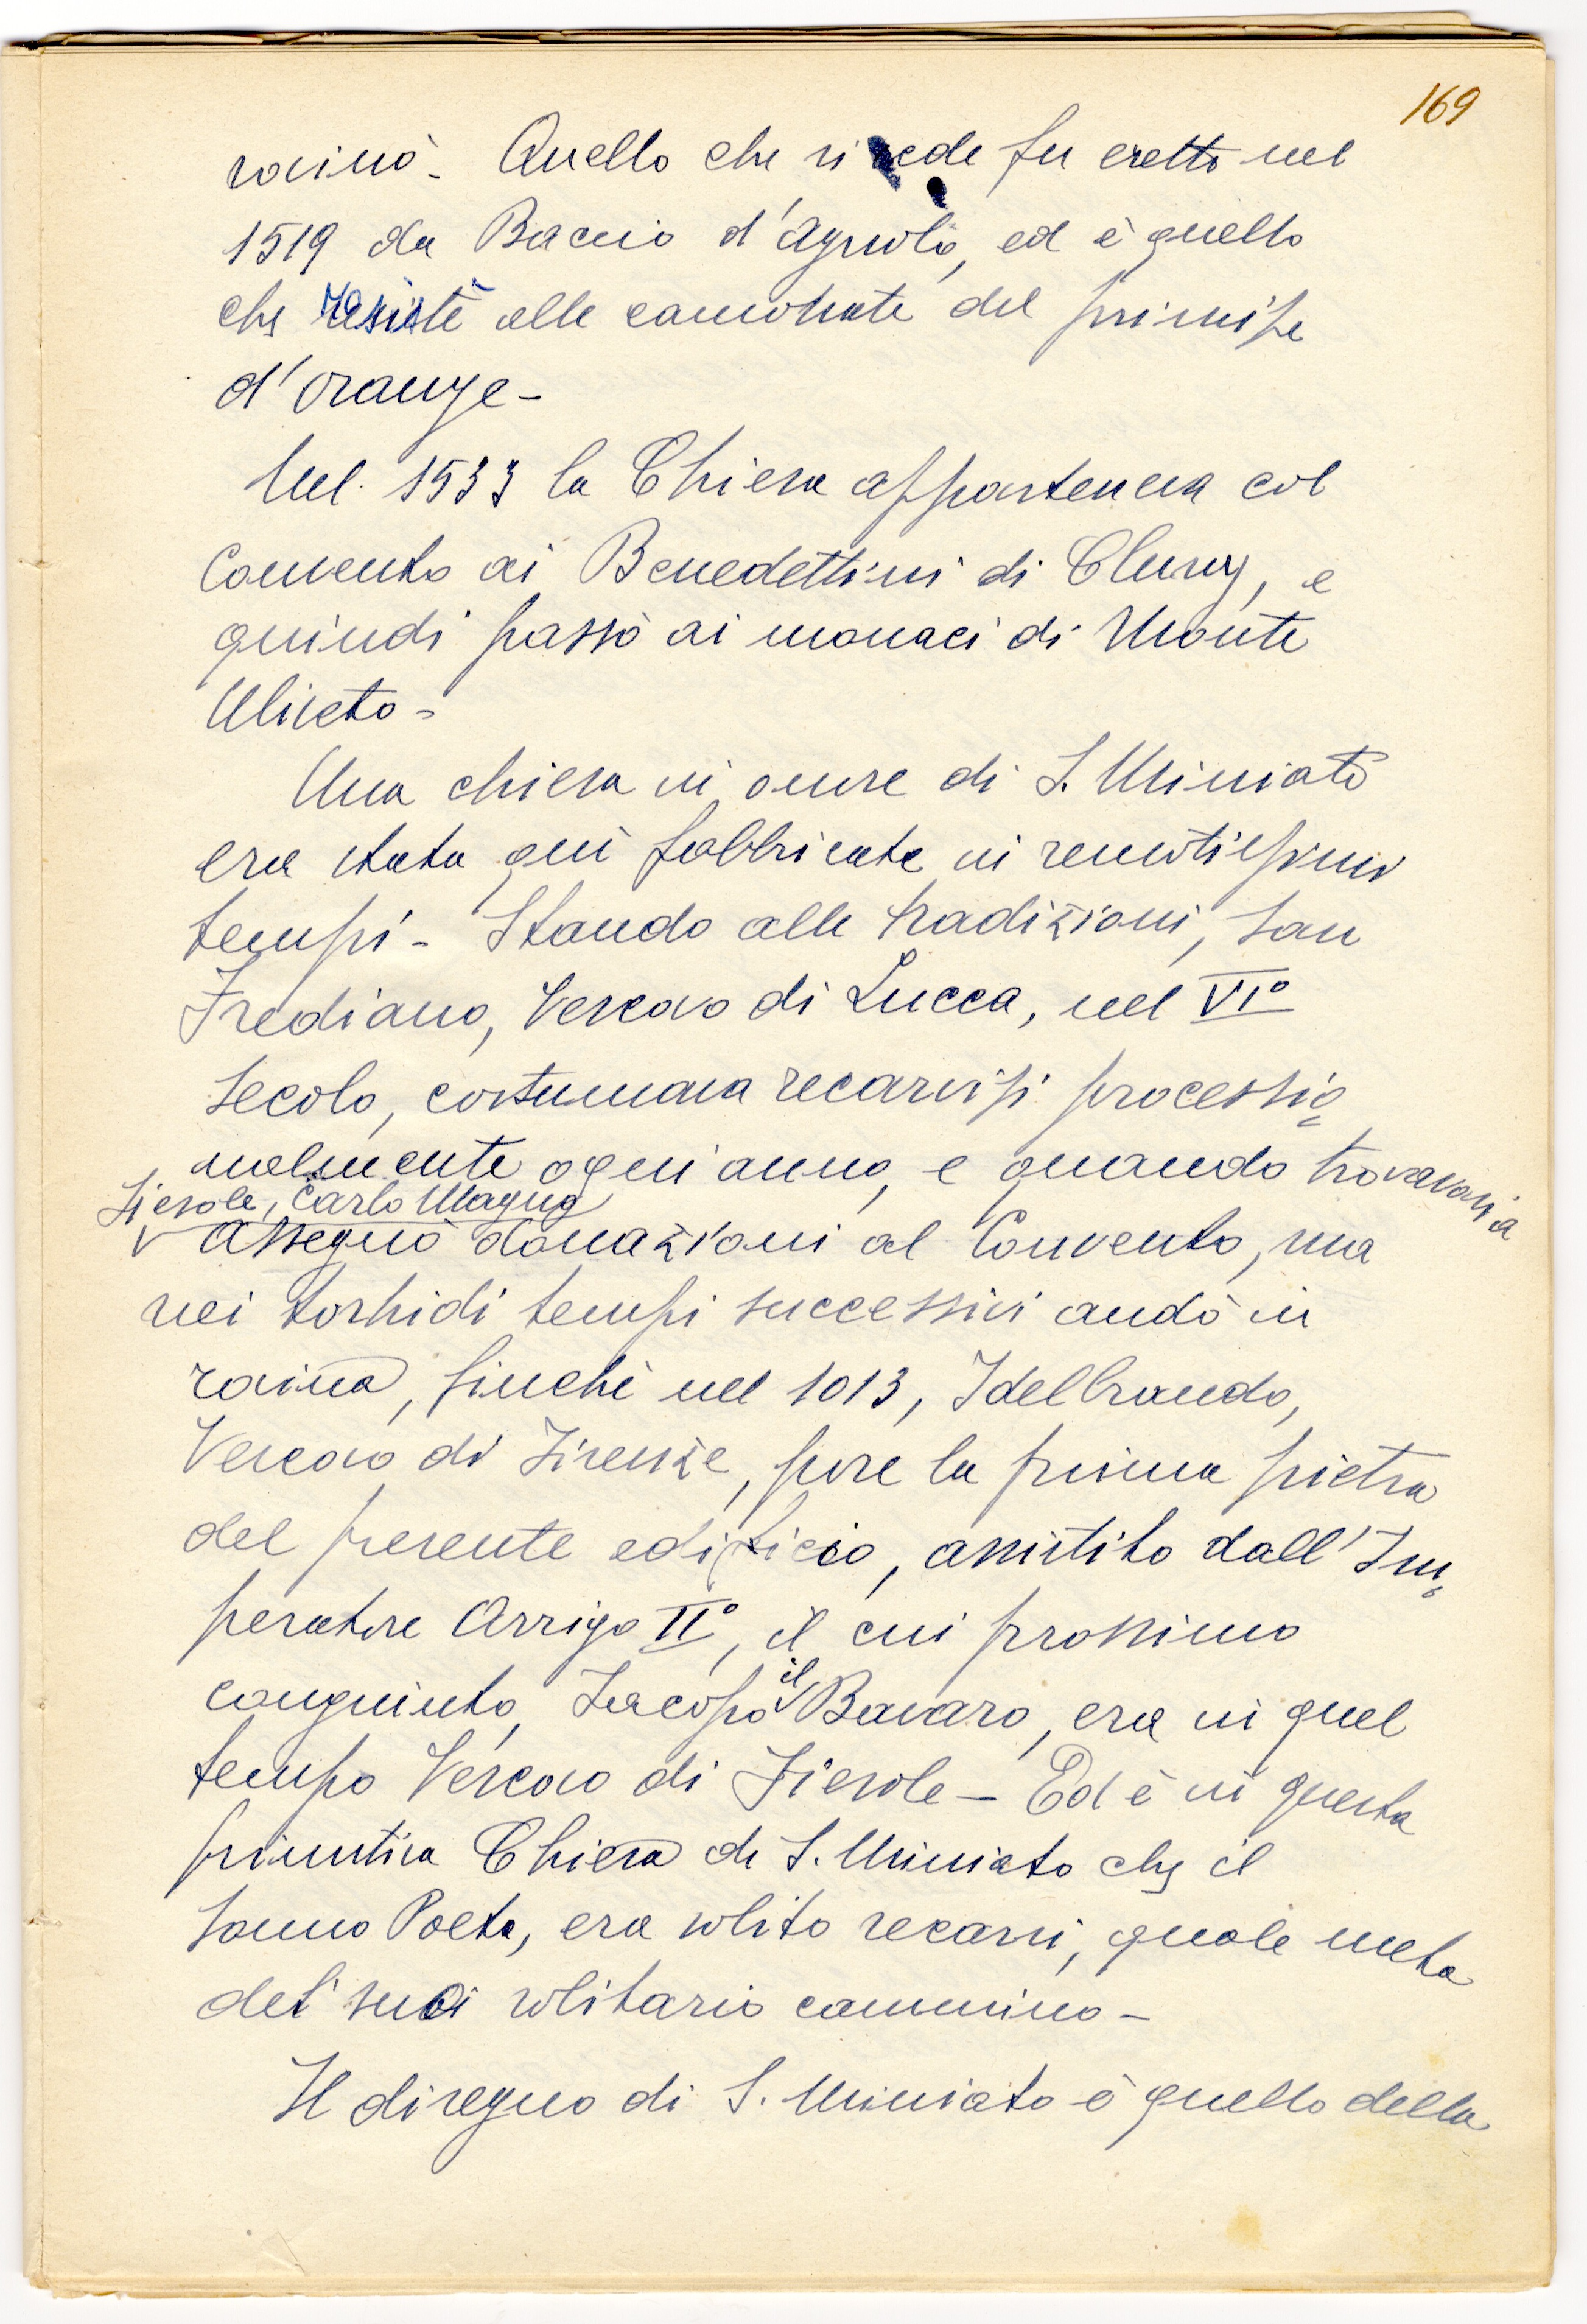 169
rovinò - Quello che si vede fu eretto nel
1519 da Baccio d'Agnolo, ed è quello
che resistè alle cannonate del principe
d'Orange -
Nel 1533 la Chiesa apparteneva col
Convento ai Benedettini di Cluny, e
quindi passò ai monaci di Monte
Uliveto -
Una chiesa in onore di S. Miniato
era stata quì fabbricata in remotissimi
tempi - Stando alle tradizioni, San
Frediano, Vescovo di Lucca, nel VI°
secolo, costumava recarvisi processio=
nalmente ogni anno, e quando trovavasi a
Fiesole, Carlo Magno
assegnò donazioni al Convento, ma
nei torbidi tempi successivi andò in
rovina, finchè nel 1013, Idelbrando,
Vescovo di Firenze, pose la prima pietra
del presente edificio, assistito dall'Im=
peratore Arrigo II°, il cui prossimo
congiunto, Jacopo il Bavaro, era in quel
tempo Vescovo di Fiesole - Ed è in questa
primitiva Chiesa di S. Miniato che il
Sommo Poeta, era solito recarsi, quale meta
del suoi solitario cammino -
Il disegno di S. Miniato è quello della